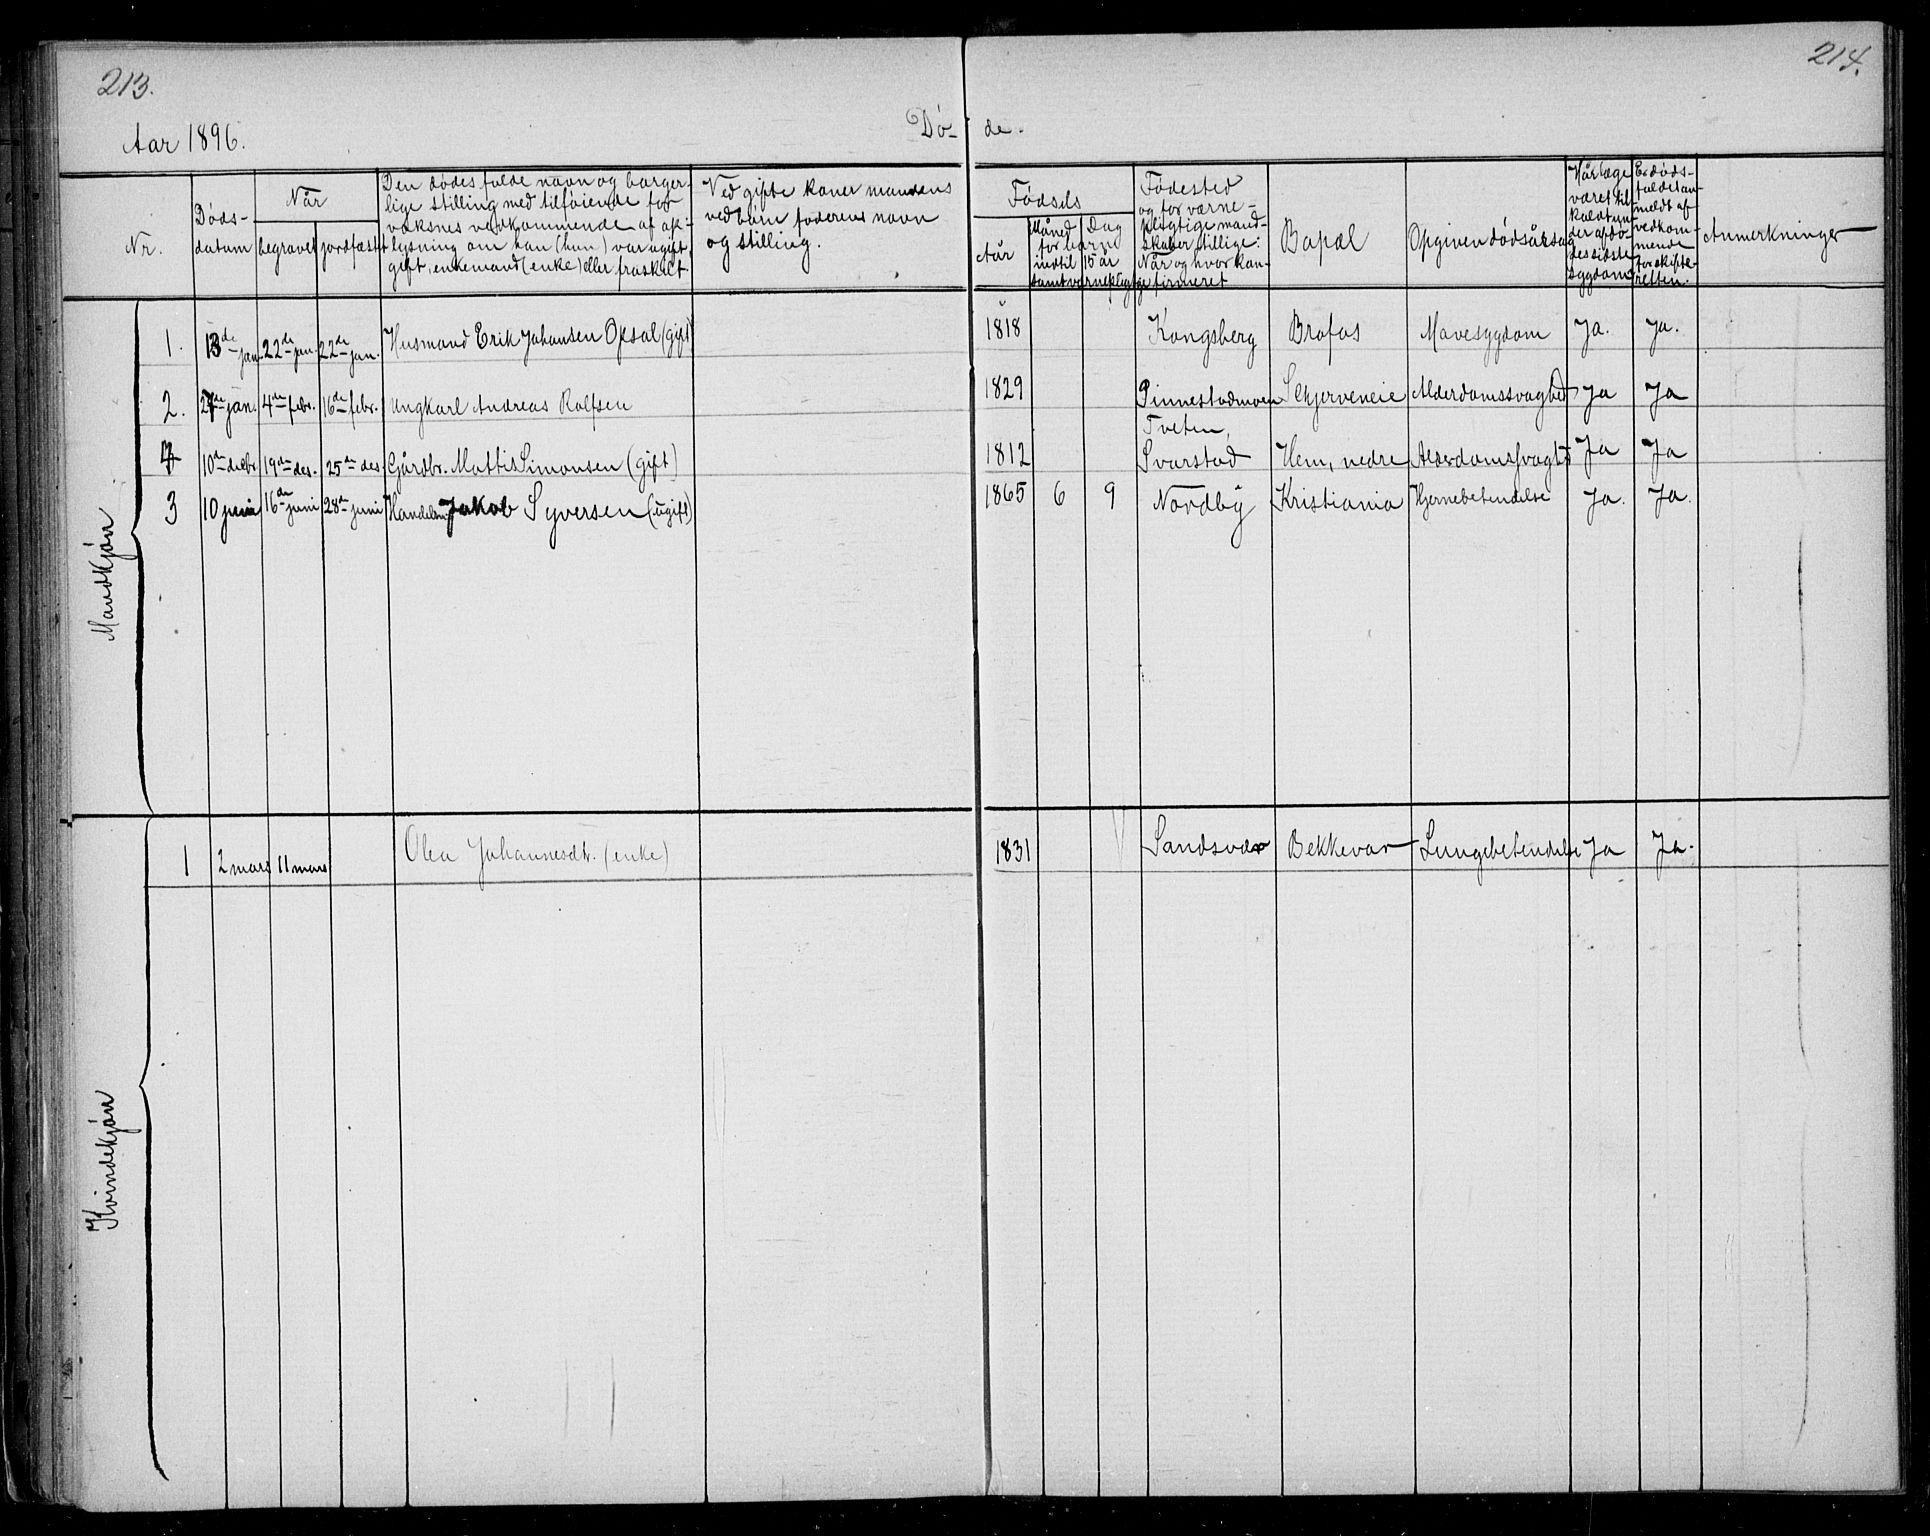 213.
214.
Aar 1896.
Dö- de.
Nr.
Døds-
datum
Når
begravet
jordfæstet
Den dødes fulde navn og borger-
lige stilling med tilføiende for
voksnes vedkommende af op-
lysning om han (hun) var ugift,
gift, enkemand (enke) eller fraskilt.
Ved gifte koner mandens
ved børn faderens navn
og stilling.
Fødsels
Aar
Måned Dag
for børn
indtil 15 år
samt værnepligtige
Fødested
og for værne-
pligtige mand-
skaber tillige:
Når og hvor kon-
firmeret
Bopæl
Opgiven dødsårsag
Har læge
været til-
kaldt un-
der afdø-
des sidste
sygdom
Er døds-
faldet an-
meldt af
vedkom-
mende
for skifte-
retten.
Anmerkninger
Mandkjøn
1. 13de jan. 22de jan. 22de jan. Husmand Erik Johansen Opsal (gift) 1818 Kongsberg Brofos Mavesygdom Ja. Ja.
2. 27de jan. 4de febr. 16de febr. Ungkarl Andreas Rolfsen 1829 Pinnestadmoen Skjerveneie Alderdomssvaghed Ja Ja
Tveten,
4 10de decbr. 19de des. 25de des. Gårdbr. Mattis Simonsen (gift) 1812 Svarstad Hem, nedre Alderdomssvaghd Ja Ja
3 10 juni 16de juni 28de juni Handelsm. Jakob Syversen (ugift) 1865 6 9 Nordby Kristiania Hjernebetendelse Ja. Ja.
Kvindekjøn
1 2 mars 11 mars Olea Johannesdt. (enke) 1831 Sandsvær Bekkevar Lungebetendelse Ja Ja.